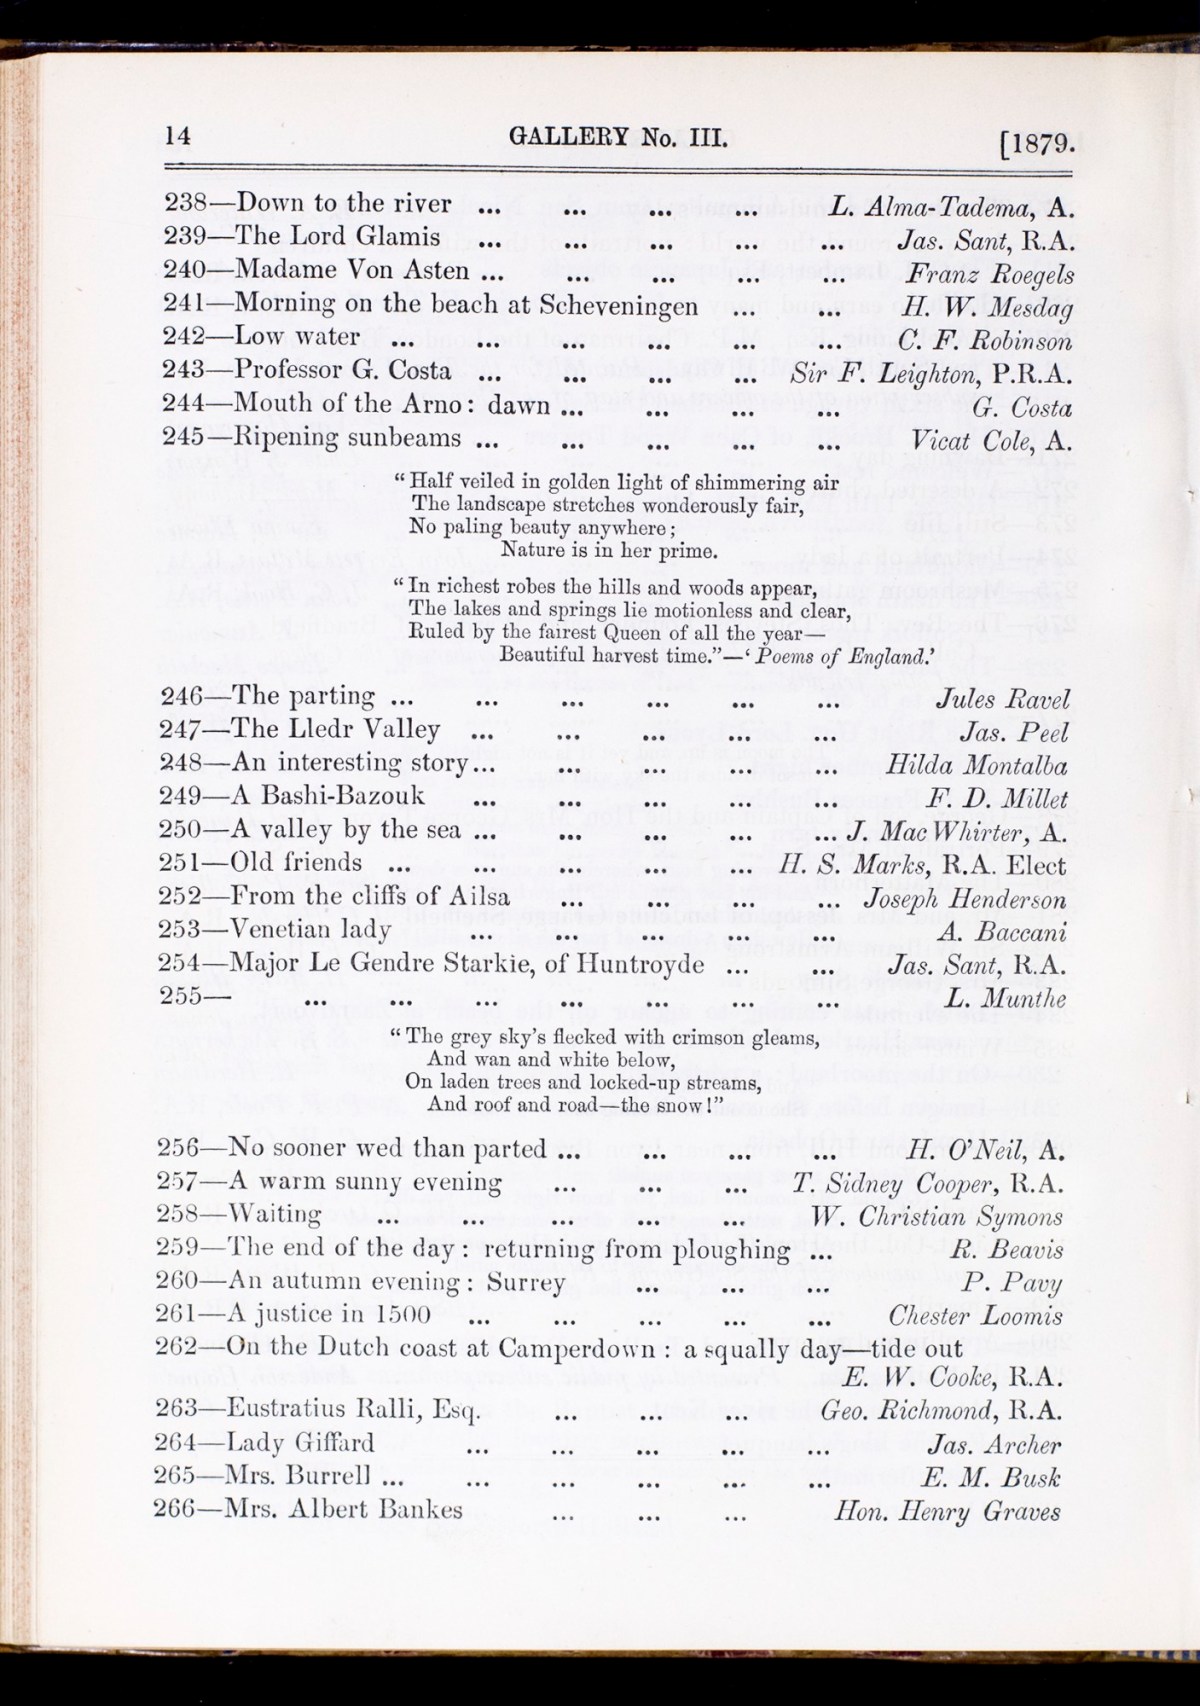 14 GALLERY No. III. [1879.
238—Down to the river ... ... ... ... L. Alma-Tadema, A.
239—The Lord Glamis ... ... ... ... ... Jas. Sant, R.A.
240—Madame Von Asten ... ... ... ... ... Franz Roegels
241—Morning on the beach at Scheveningen ... ... H. W. Mesdag
242—Low water ... ... ... ... ... ... C. F. Robinson
243—Professor G. Costa ... ... ... ... Sir F. Leighton, P.R.A.
244—Mouth of the Arno: dawn ... ... ... ... G. Costa
245—Ripening sunbeams ... ... ... ... ... Vicat Cole, A.
“Half veiled in golden light of shimmering air
The landscape stretches wonderously fair,
No paling beauty anywhere;
Nature is in her prime.
“In richest robes the hills and woods appear,
The lakes and springs lie motionless and clear,
Ruled by the fairest Queen of all the year—
Beautiful harvest time.”—‘Poems of England.’
246—The parting ... ... ... ... ... ... Jules Ravel
247—The Lledr Valley ... ... ... ... ... Jas. Peel
248—An interesting story... ... ... ... ... Hilda Montalba
249—A Bashi-Bazouk ... ... ... ... ... F. D. Millet
250—A valley by the sea ... ... ... ... ... J. MacWhirter, A.
251—Old friends ... ... ... ... ... H. S. Marks, R.A. Elect
252—From the cliffs of Ailsa ... ... ... ... Joseph Henderson
253—Venetian lady ... ... ... ... ... A. Baccani
254—Major Le Gendre Starkie, of Huntroyde ... ... Jas. Sant, R.A.
255— ... ... ... ... ... ... ... L. Munthe
“The grey sky’s flecked with crimson gleams,
And wan and white below,
On laden trees and locked-up streams,
And roof and road—the snow!”
256—No sooner wed than parted ... ... ... ... H. O’Neil, A.
257—A warm sunny evening ... ... ... T. Sidney Cooper, R.A.
258—Waiting ... ... ... ... ... W. Christian Symons
259—The end of the day: returning from ploughing ... R. Beavis
260—An autumn evening: Surrey ... ... ... P. Pavy
261—A justice in 1500 ... ... ... ... ... Chester Loomis
262—On the Dutch coast at Camperdown: a squally day—tide out
E. W. Cooke, R.A.
263—Eustratius Ralli, Esq. ... ... ... Geo. Richmond, R.A.
264—Lady Giffard ... ... ... ... ... Jas. Archer
265—Mrs. Burrell ... ... ... ... ... ... E. M. Busk
266—Mrs. Albert Bankes ... ... ... Hon. Henry Graves